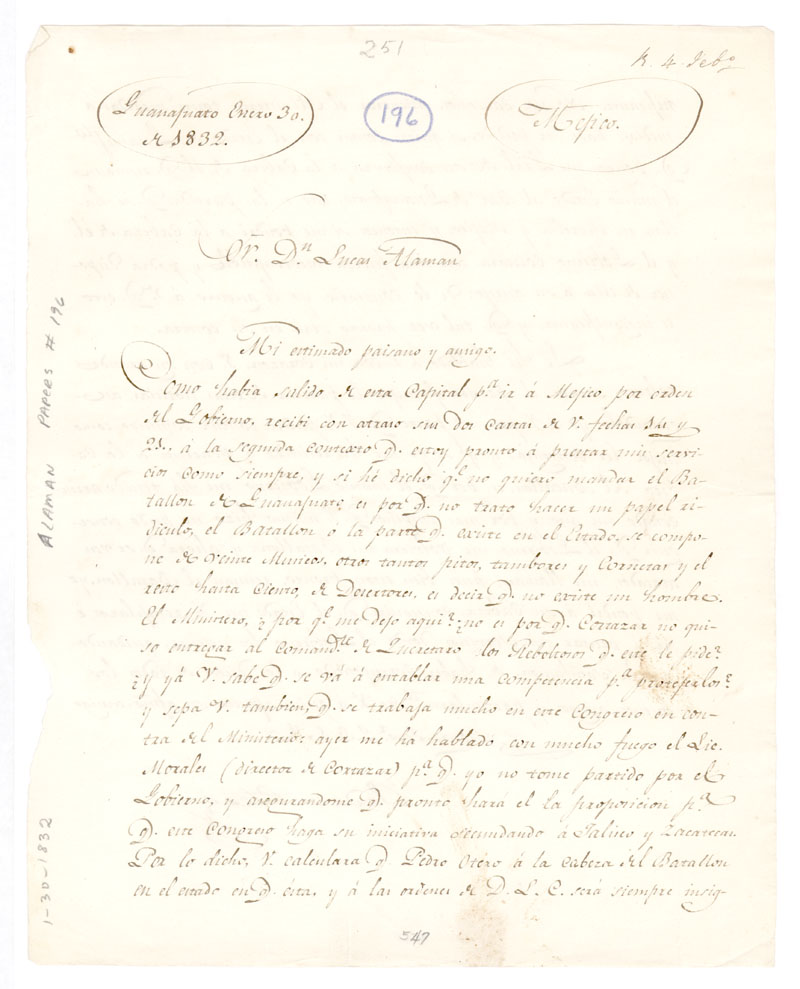 251
R. 4. Feb.o
Guanajuato Enero 30.
de 1832.
196
Mejico.
Sr. Dn. Lucas Alaman
Mi estimado paisano y amigo.
Como habia salido de esta Capital pa. ir á Mejico por orden
del Gobierno, recibi con atraso sus dos Cartas de V. fechas y
21.. á la segunda contexto q. estoy pronto á prestar mis servi-
cios como siempre, y si hé dicho qe. no quiero mandar el Ba-
tallon de Guanajuato; es por q. no trato hacer un papel ri-
diculo, el Batallon ó la parte q. existe en el Estado, se compo-
ne de veinte Musicos, otros tantos pitos, tambores y Cornetas y el
resto hasta Ciento, de Desertores, es decir q. no existe un hombre.
El Ministerio, ¿por qe. me dejo aqui? ¿no es por q. Cortazar no qui-
so entregar al Comandte. de Queretaro los Reboltosos q. este le pide?
¿y yá V. sabe q. se vá á entablar una Competencia pa. protejerlos?
y sepa V. tambien, q. se trabaja mucho en este Congreso en con-
tra del Ministerio: ayer me há hablado con mucho fuego el Lic.
Morales (director de Cortazar) pa. q. yo no tome partido por el
Gobierno, y asegurandome q. pronto hará el la proposicion pa.
q. este Congreso haga su iniciativa secundando á Jalisco y Zacatecas.
Por lo dicho, V. calculara q. Pedro Otero á la Cabeza del Batallon
en el estado en q. está, y á las ordenes de D. L. C. será siempre insig-
347
ALAMAN PAPERS # 196
1-30-1832